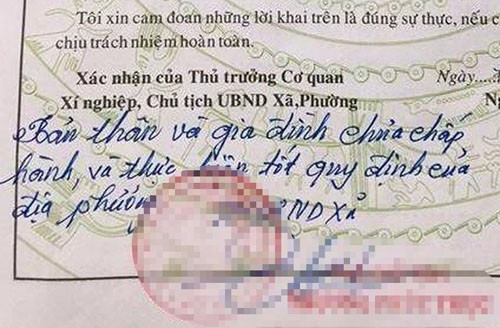 Tôi xin cam đoan những lời khai trên là đúng sự thực, nếu c
chịu trách nhiệm hoàn toàn.
Xác nhận của Thủ trưởng Cơ quan
Ngày....
Xí nghiệp, Chủ tịch UBND Xã,Phường
Bản thân và gia đình chưa chấp
hành, và thực hiện tốt quy định của
địa phương NDXã